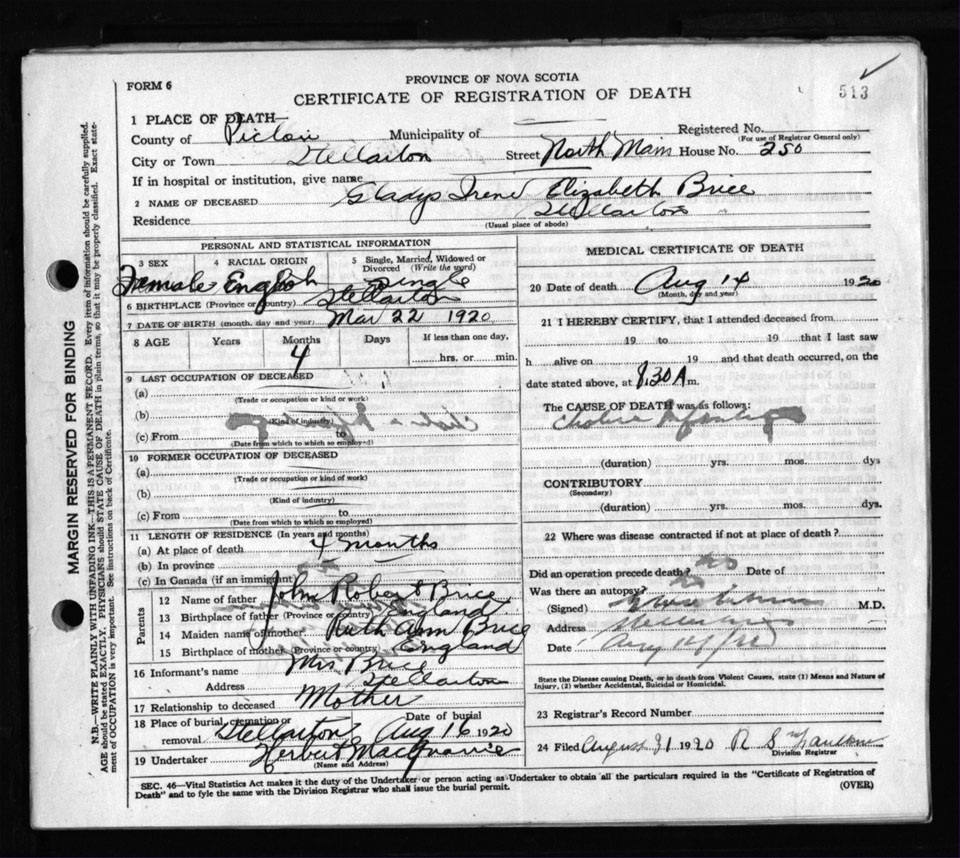 513
FORM 6
PROVINCE OF NOVA SCOTIA
CERTIFICATE OF REGISTRATION OF DEATH
1 PLACE OF DEATH—
County of Pictou Municipality of
Registered No.
(For use of Registrar General only)
City or Town Stellarton Street North Main House No. 250
If in hospital or institution, give name
2 NAME OF DECEASED Gladys Irene Elizabeth Brice
Residence Stellarton
(Usual place of abode)
PERSONAL AND STATISTICAL INFORMATION
3 SEX 4 RACIAL ORIGIN 5 Single, Married, Widowed or Divorced (Write the word)
Female English Single
6 BIRTHPLACE (Province or country) Stellarton
7 DATE OF BIRTH (month, day and year) Mar 22 1920
8 AGE Years Months Days If less than one day,
4 hrs. or min.
9 LAST OCCUPATION OF DECEASED
(a)
(Trade or occupation or kind or work)
(b)
(Kind of industry)
(c) From to
(Date from which to which so employed)
10 FORMER OCCUPATION OF DECEASED
(a)
(Trade or occupation or kind of work)
(b)
(Kind of industry)
(c) From to
(Date from which to which so employed)
11 LENGTH OF RESIDENCE (In years and months)
(a) At place of death 4 months
(b) In province
(c) In Canada (if an immigrant)
Parents
12 Name of father John Robert Brice
13 Birthplace of father (Province or country) England
14 Maiden name of mother Ruth Ann Brice
15 Birthplace of mother (Province or country) England
16 Informant's name Mrs Brice
Address Stellarton
17 Relationship to deceased Mother
18 Place of burial, cremation or removal Stellarton Date of burial Aug 16 1920
19 Undertaker Herbert MacQuarrie
(Name and Address)
MEDICAL CERTIFICATE OF DEATH
20 Date of death Aug 14 1920
(Month, day and year)
21 I HEREBY CERTIFY, that I attended deceased from
19 to 19 that I last saw
h alive on 19 and that death occurred, on the
date stated above, at 8.30 A m.
The CAUSE OF DEATH was as follows:
(duration) yrs. mos. dys
CONTRIBUTORY
(Secondary)
(duration) yrs. mos. dys.
22 Where was disease contracted if not at place of death?
Did an operation precede death? no Date of
Was there an autopsy? no
(Signed) M.D.
Address Stellarton
Date Aug 14/20
State the Disease causing Death, or in death from Violent Causes, state (1) Means and Nature of
Injury, (2) whether Accidental, Suicidal or Homicidal.
23 Registrar's Record Number
24 Filed August 31 1920 R S
Division Registrar
SEC. 46—Vital Statistics Act makes it the duty of the Undertaker or person acting as Undertaker to obtain all the particulars required in the "Certificate of Registration of
Death" and to fyle the same with the Division Registrar who shall issue the burial permit.
(OVER)
MARGIN RESERVED FOR BINDING
N.B.—WRITE PLAINLY WITH UNFADING INK—THIS IS A PERMANENT RECORD. Every item of information should be carefully supplied.
AGE should be stated EXACTLY. PHYSICIANS should STATE CAUSE OF DEATH in plain terms, so that it may be properly classified. Exact statement of OCCUPATION is very important. See instructions on back of Certificate.